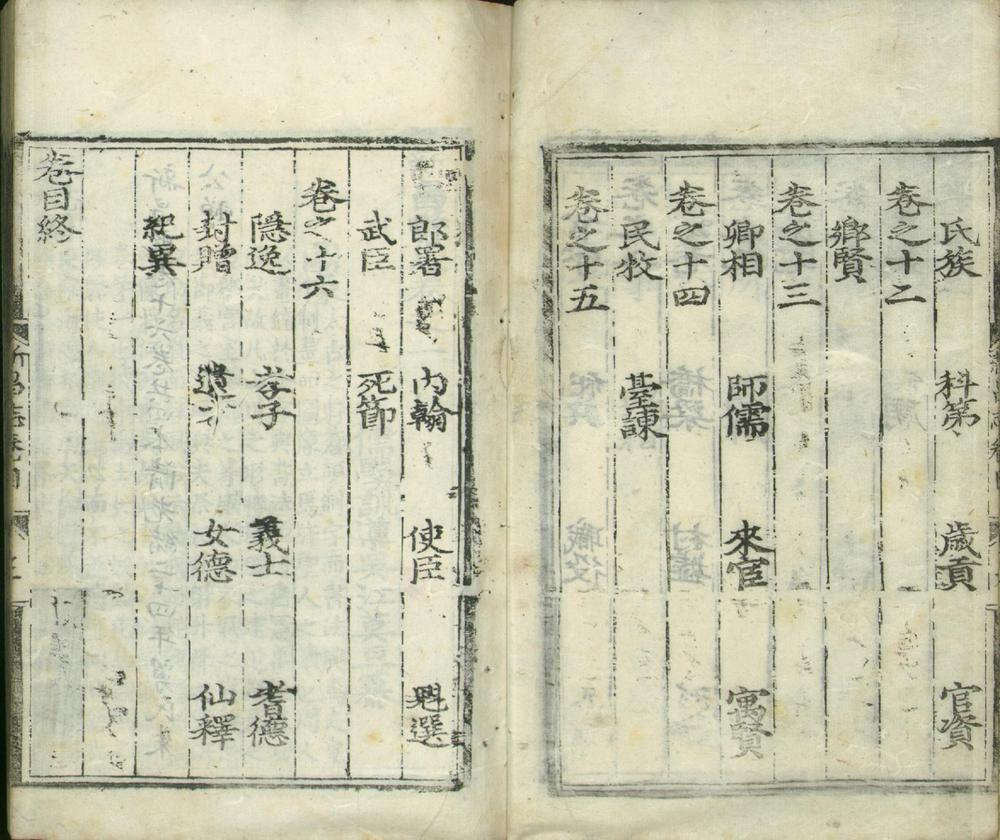 氏族 科第 歲貢 官資
卷之十二
鄕賢
卷之十三
卿相 師儒 來官 寓賢
卷之十四
民牧 臺諫
卷之十五
郎署 內翰 使臣 剡選
武臣 死節
卷之十六
隱逸 孝子 義士 耆德
封贈 女德 仙釋
紀異
卷目終